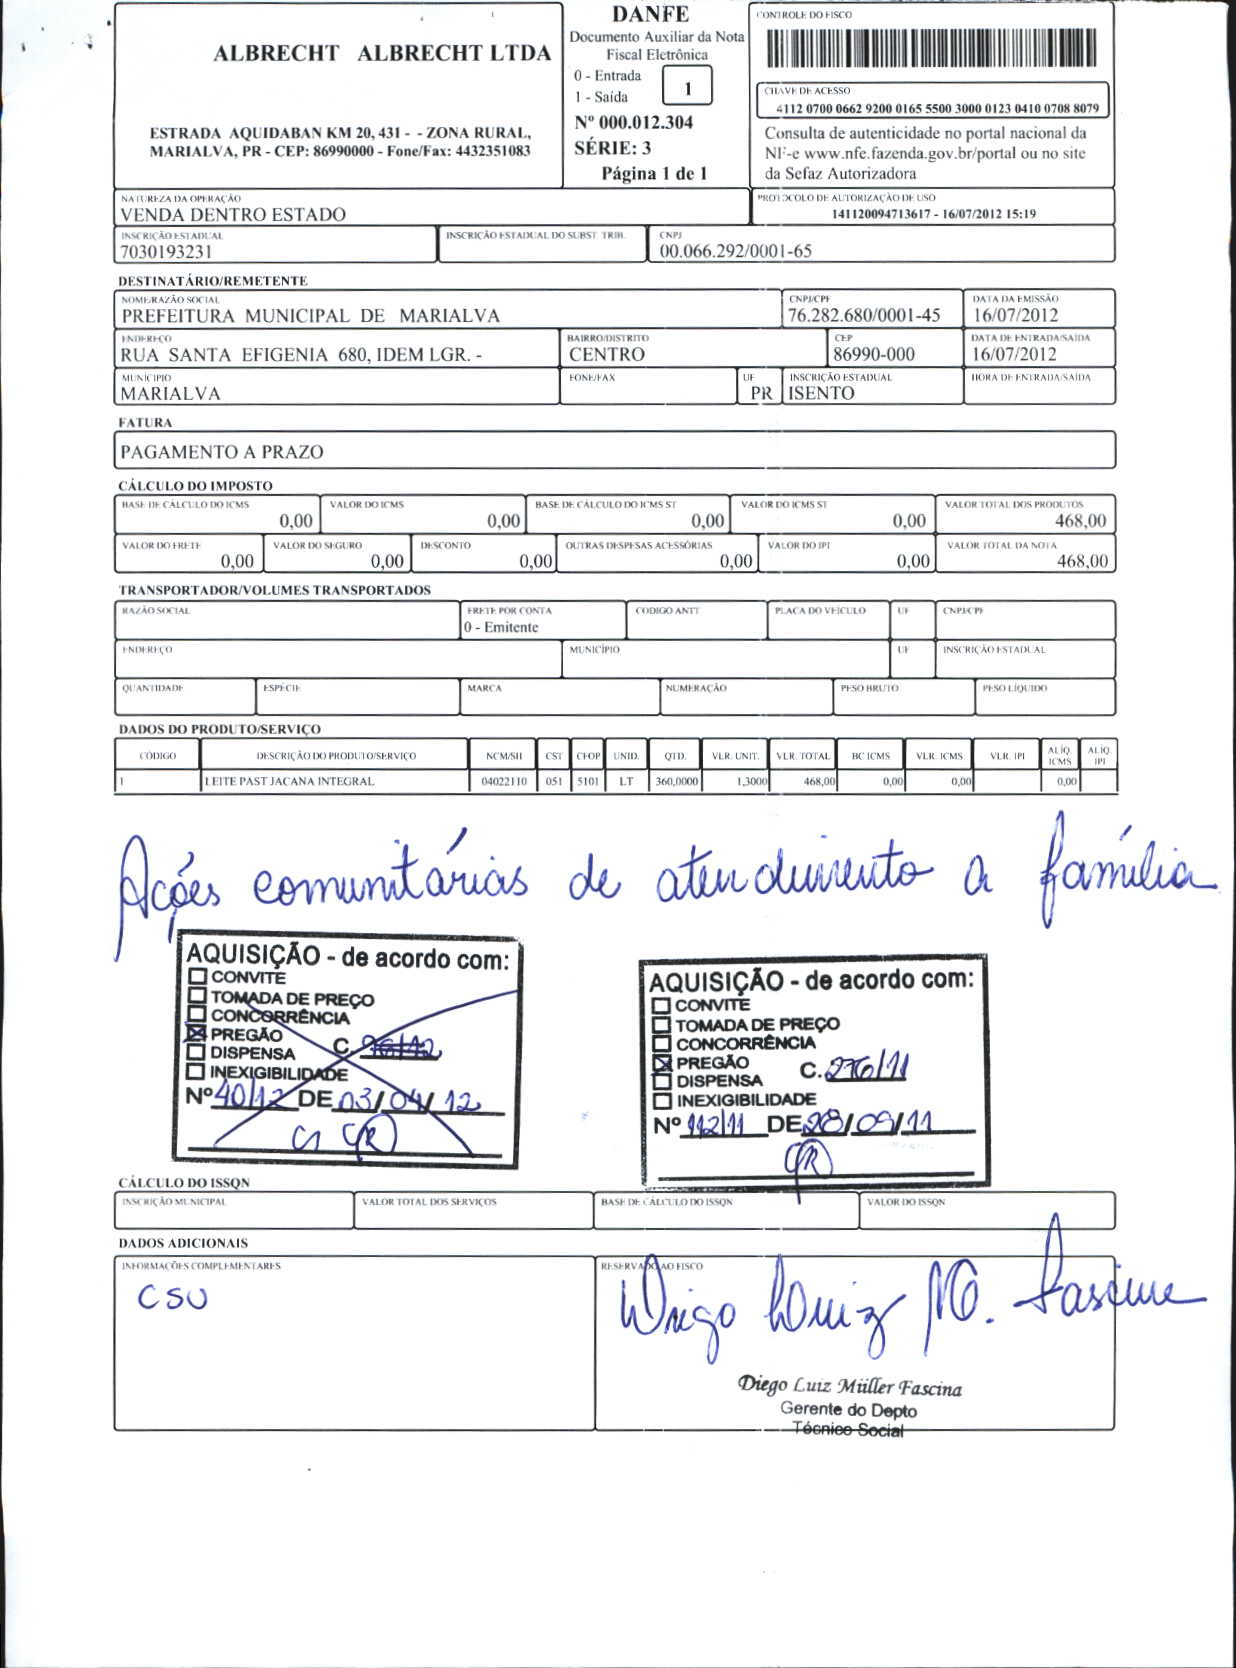 ALBRECHT ALBRECHT LTDA
ESTRADA AQUIDABAN KM 20, 431 - - ZONA RURAL,
MARIALVA, PR - CEP: 86990000 - Fone/Fax: 4432351083
DANFE
Documento Auxiliar da Nota
Fiscal Eletrônica
0 - Entrada
1 - Saída
1
Nº 000.012.304
SÉRIE: 3
Página 1 de 1
CONTROLE DO FISCO
CHAVE DE ACESSO
4112 0700 0662 9200 0165 5500 3000 0123 0410 0708 8079
Consulta de autenticidade no portal nacional da
NF-e www.nfe.fazenda.gov.br/portal ou no site
da Sefaz Autorizadora
NATUREZA DA OPERAÇÃO
VENDA DENTRO ESTADO
PROTOCOLO DE AUTORIZAÇÃO DE USO
141120094713617 - 16/07/2012 15:19
INSCRIÇÃO ESTADUAL
7030193231
INSCRIÇÃO ESTADUAL DO SUBST. TRIB.
CNPJ
00.066.292/0001-65
DESTINATÁRIO/REMETENTE
NOME/RAZÃO SOCIAL
PREFEITURA MUNICIPAL DE MARIALVA
CNPJ/CPF
76.282.680/0001-45
DATA DA EMISSÃO
16/07/2012
ENDEREÇO
RUA SANTA EFIGENIA 680, IDEM LGR. -
BAIRRO/DISTRITO
CENTRO
CEP
86990-000
DATA DE ENTRADA/SAÍDA
16/07/2012
MUNICÍPIO
MARIALVA
FONE/FAX
UF
PR
INSCRIÇÃO ESTADUAL
ISENTO
HORA DE ENTRADA/SAÍDA
FATURA
PAGAMENTO A PRAZO
CÁLCULO DO IMPOSTO
BASE DE CÁLCULO DO ICMS
0,00
VALOR DO ICMS
0,00
BASE DE CÁLCULO DO ICMS ST
0,00
VALOR DO ICMS ST
0,00
VALOR TOTAL DOS PRODUTOS
468,00
VALOR DO FRETE
0,00
VALOR DO SEGURO
0,00
DESCONTO
0,00
OUTRAS DESPESAS ACESSÓRIAS
0,00
VALOR DO IPI
0,00
VALOR TOTAL DA NOTA
468,00
TRANSPORTADOR/VOLUMES TRANSPORTADOS
RAZÃO SOCIAL
FRETE POR CONTA
0 - Emitente
CODIGO ANTT
PLACA DO VEÍCULO
UF
CNPJ/CPF
ENDEREÇO
MUNICÍPIO
UF
INSCRIÇÃO ESTADUAL
QUANTIDADE
ESPÉCIE
MARCA
NUMERAÇÃO
PESO BRUTO
PESO LÍQUIDO
DADOS DO PRODUTO/SERVIÇO
CÓDIGO DESCRIÇÃO DO PRODUTO/SERVIÇO NCM/SH CST CFOP UNID. QTD. VLR. UNIT. VLR. TOTAL BC ICMS VLR. ICMS VLR. IPI ALÍQ. ICMS ALÍQ. IPI
1 LEITE PAST JACANA INTEGRAL 04022110 051 5101 LT 360,0000 1,3000 468,00 0,00 0,00 0,00
Ações comunitárias de atendimento a família
AQUISIÇÃO - de acordo com:
CONVITE
TOMADA DE PREÇO
CONCORRÊNCIA
PREGÃO
DISPENSA C. 96/12
INEXIGIBILIDADE
Nº 40/12 DE 03/04/12
AQUISIÇÃO - de acordo com:
CONVITE
TOMADA DE PREÇO
CONCORRÊNCIA
PREGÃO
DISPENSA C. 276/11
INEXIGIBILIDADE
Nº 112/11 DE 28/09/11
CÁLCULO DO ISSQN
INSCRIÇÃO MUNICIPAL
VALOR TOTAL DOS SERVIÇOS
BASE DE CÁLCULO DO ISSQN
VALOR DO ISSQN
DADOS ADICIONAIS
INFORMAÇÕES COMPLEMENTARES
CSU
RESERVADO AO FISCO
Diego Luiz M. Fascina
Diego Luiz Müller Fascina
Gerente do Depto
Técnico Social